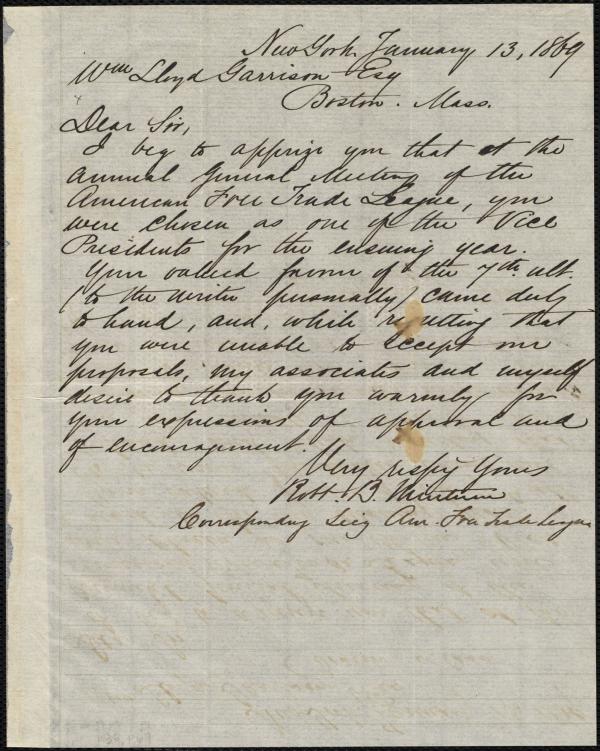 New York, January 13, 1869
Wm Lloyd Garrison Esq
Boston. Mass.
Dear Sir,
I beg to apprize you that at the
Annual General Meeting of the
American Free Trade League, you
were chosen as one of the Vice
Presidents for the ensuing year.
Your valued favor of the 7th ult.
(to the writer personally) came duly
to hand, and, while regretting that
you were unable to accept our
proposals, my associates and myself
desire to thank you warmly for
your expressions of approval and
of encouragement.
Very respy Yours
Robt. B. Minturn
Corresponding Secy Am. Free Trade League